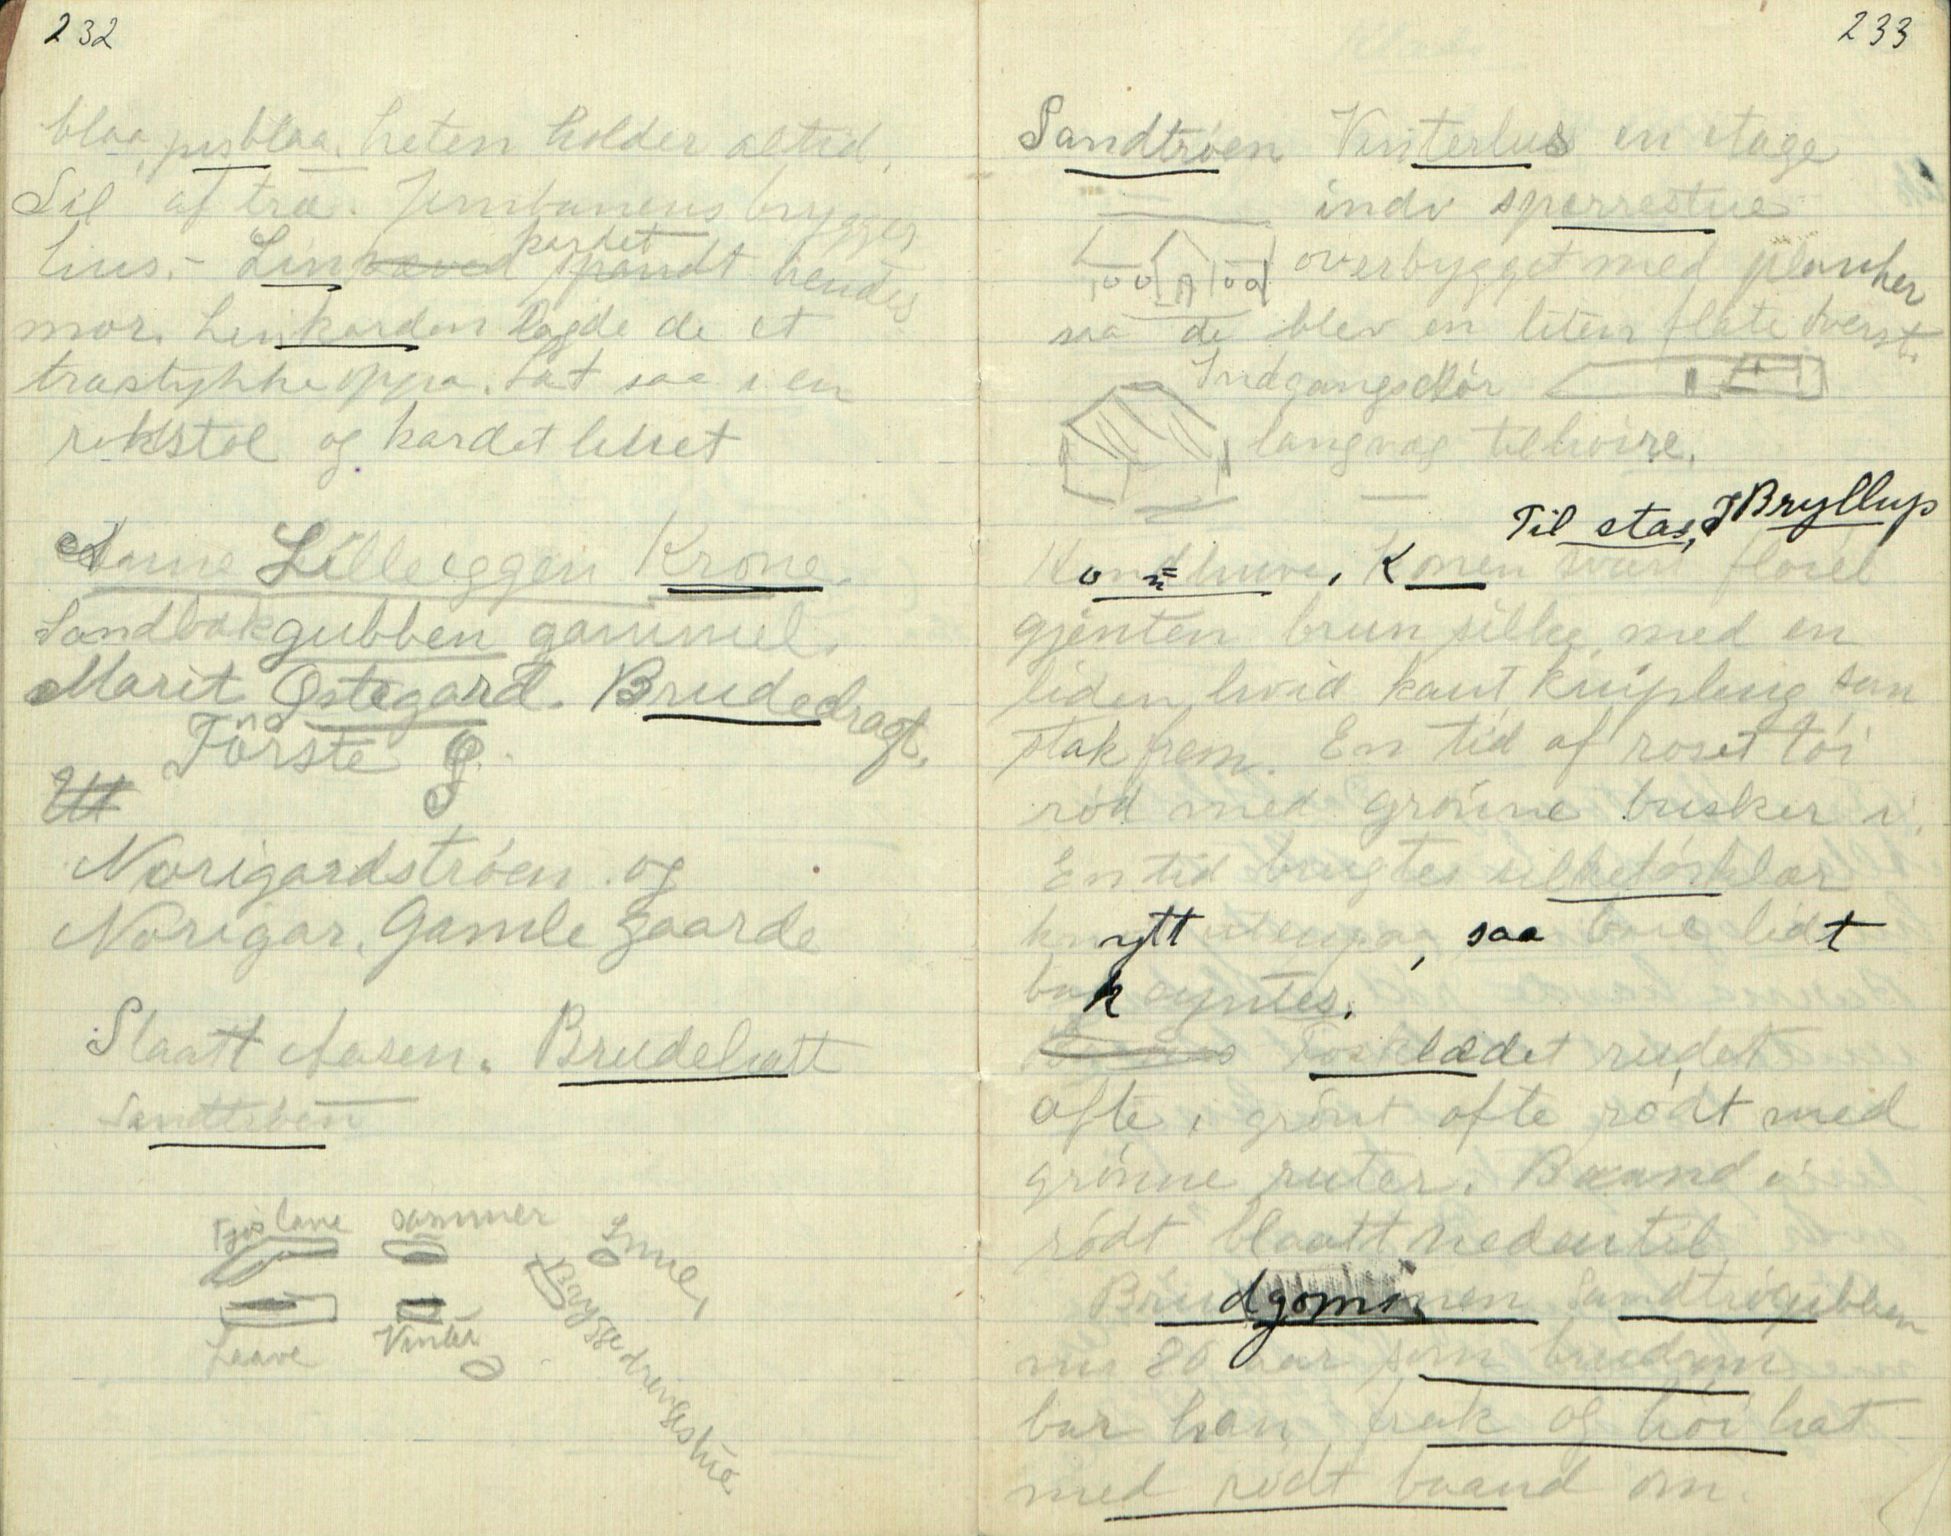 232
blaa, pisblaa. heten holder altid.
Sil af træ. Jernbanens brygger
hus. - Linvæved spandt hendes
kardet
mor. Linkardan lagde de et
træstykke oppa. Sat saa i en
rokstol og kardet linet
Anne Lilleeggen Krone.
Sandbakgubben gammel.
Marit Østegard. Brudedragt.
Förste
Norigardströen og
Norigar. Gamle gaarde
Slaatt Maren. Brudehatt
Sandtröen
Fjøs lave sommer Smie,
Bryggedrengestue
Laave Vinter
233
Sandtröen Vinterhus en etage
indv sperrestue
overbygget med planker
saa de blev en liten flate överst.
Indgangsdör
langvæg tilhöire.
Til stas, I Bryllup
Konehuva, Konen svart flöiel
gjenten brun silke, med en
liden hvid kant knipling som
stak frem. En tid af roset töi
röd med grönne busker i.
En tid brugtes silketörklær
knytt utenpaa, saa bare lidt
bak syntes.
Törklædet rudet
ofte i grönt ofte rödt med
grönne ruter. Baand i
rödt blaatt nedentil
Brudgommen Sandtrögubben
nu 86 aar som brudgom
bar han frak og höi hat
med rödt baand om.